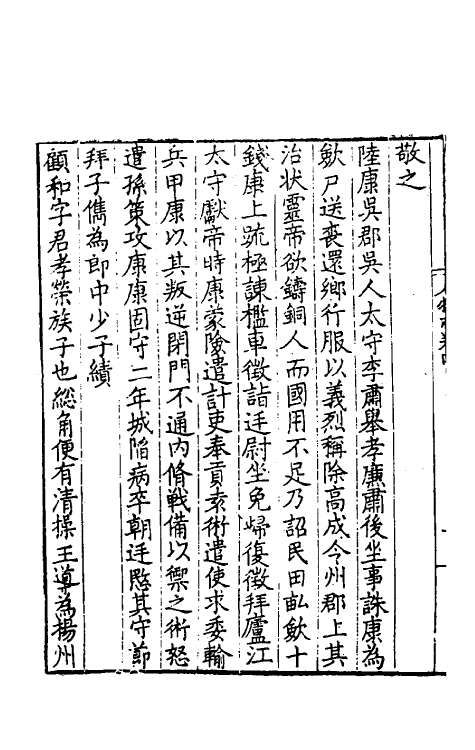 敬之
陸康吳郡吳人太守李肅舉孝廉肅後坐事誅康為
歛尸送喪還鄉行服以義烈稱除高成令州郡上其
治狀靈帝欲鑄銅人而國用不足乃詔民田畝歛十
錢康上疏極諫檻車徵詣廷尉坐免歸復徵拜廬江
太守獻帝時康蒙險遣計吏奉貢袁術遣使求委輸
兵甲康以其叛逆閉門不通內脩戰備以禦之術怒
遣孫策攻康康固守二年城陷病卒朝廷愍其守節
拜子儁為郎中少子績
顧和字君孝榮族子也總角便有清操王導為揚州